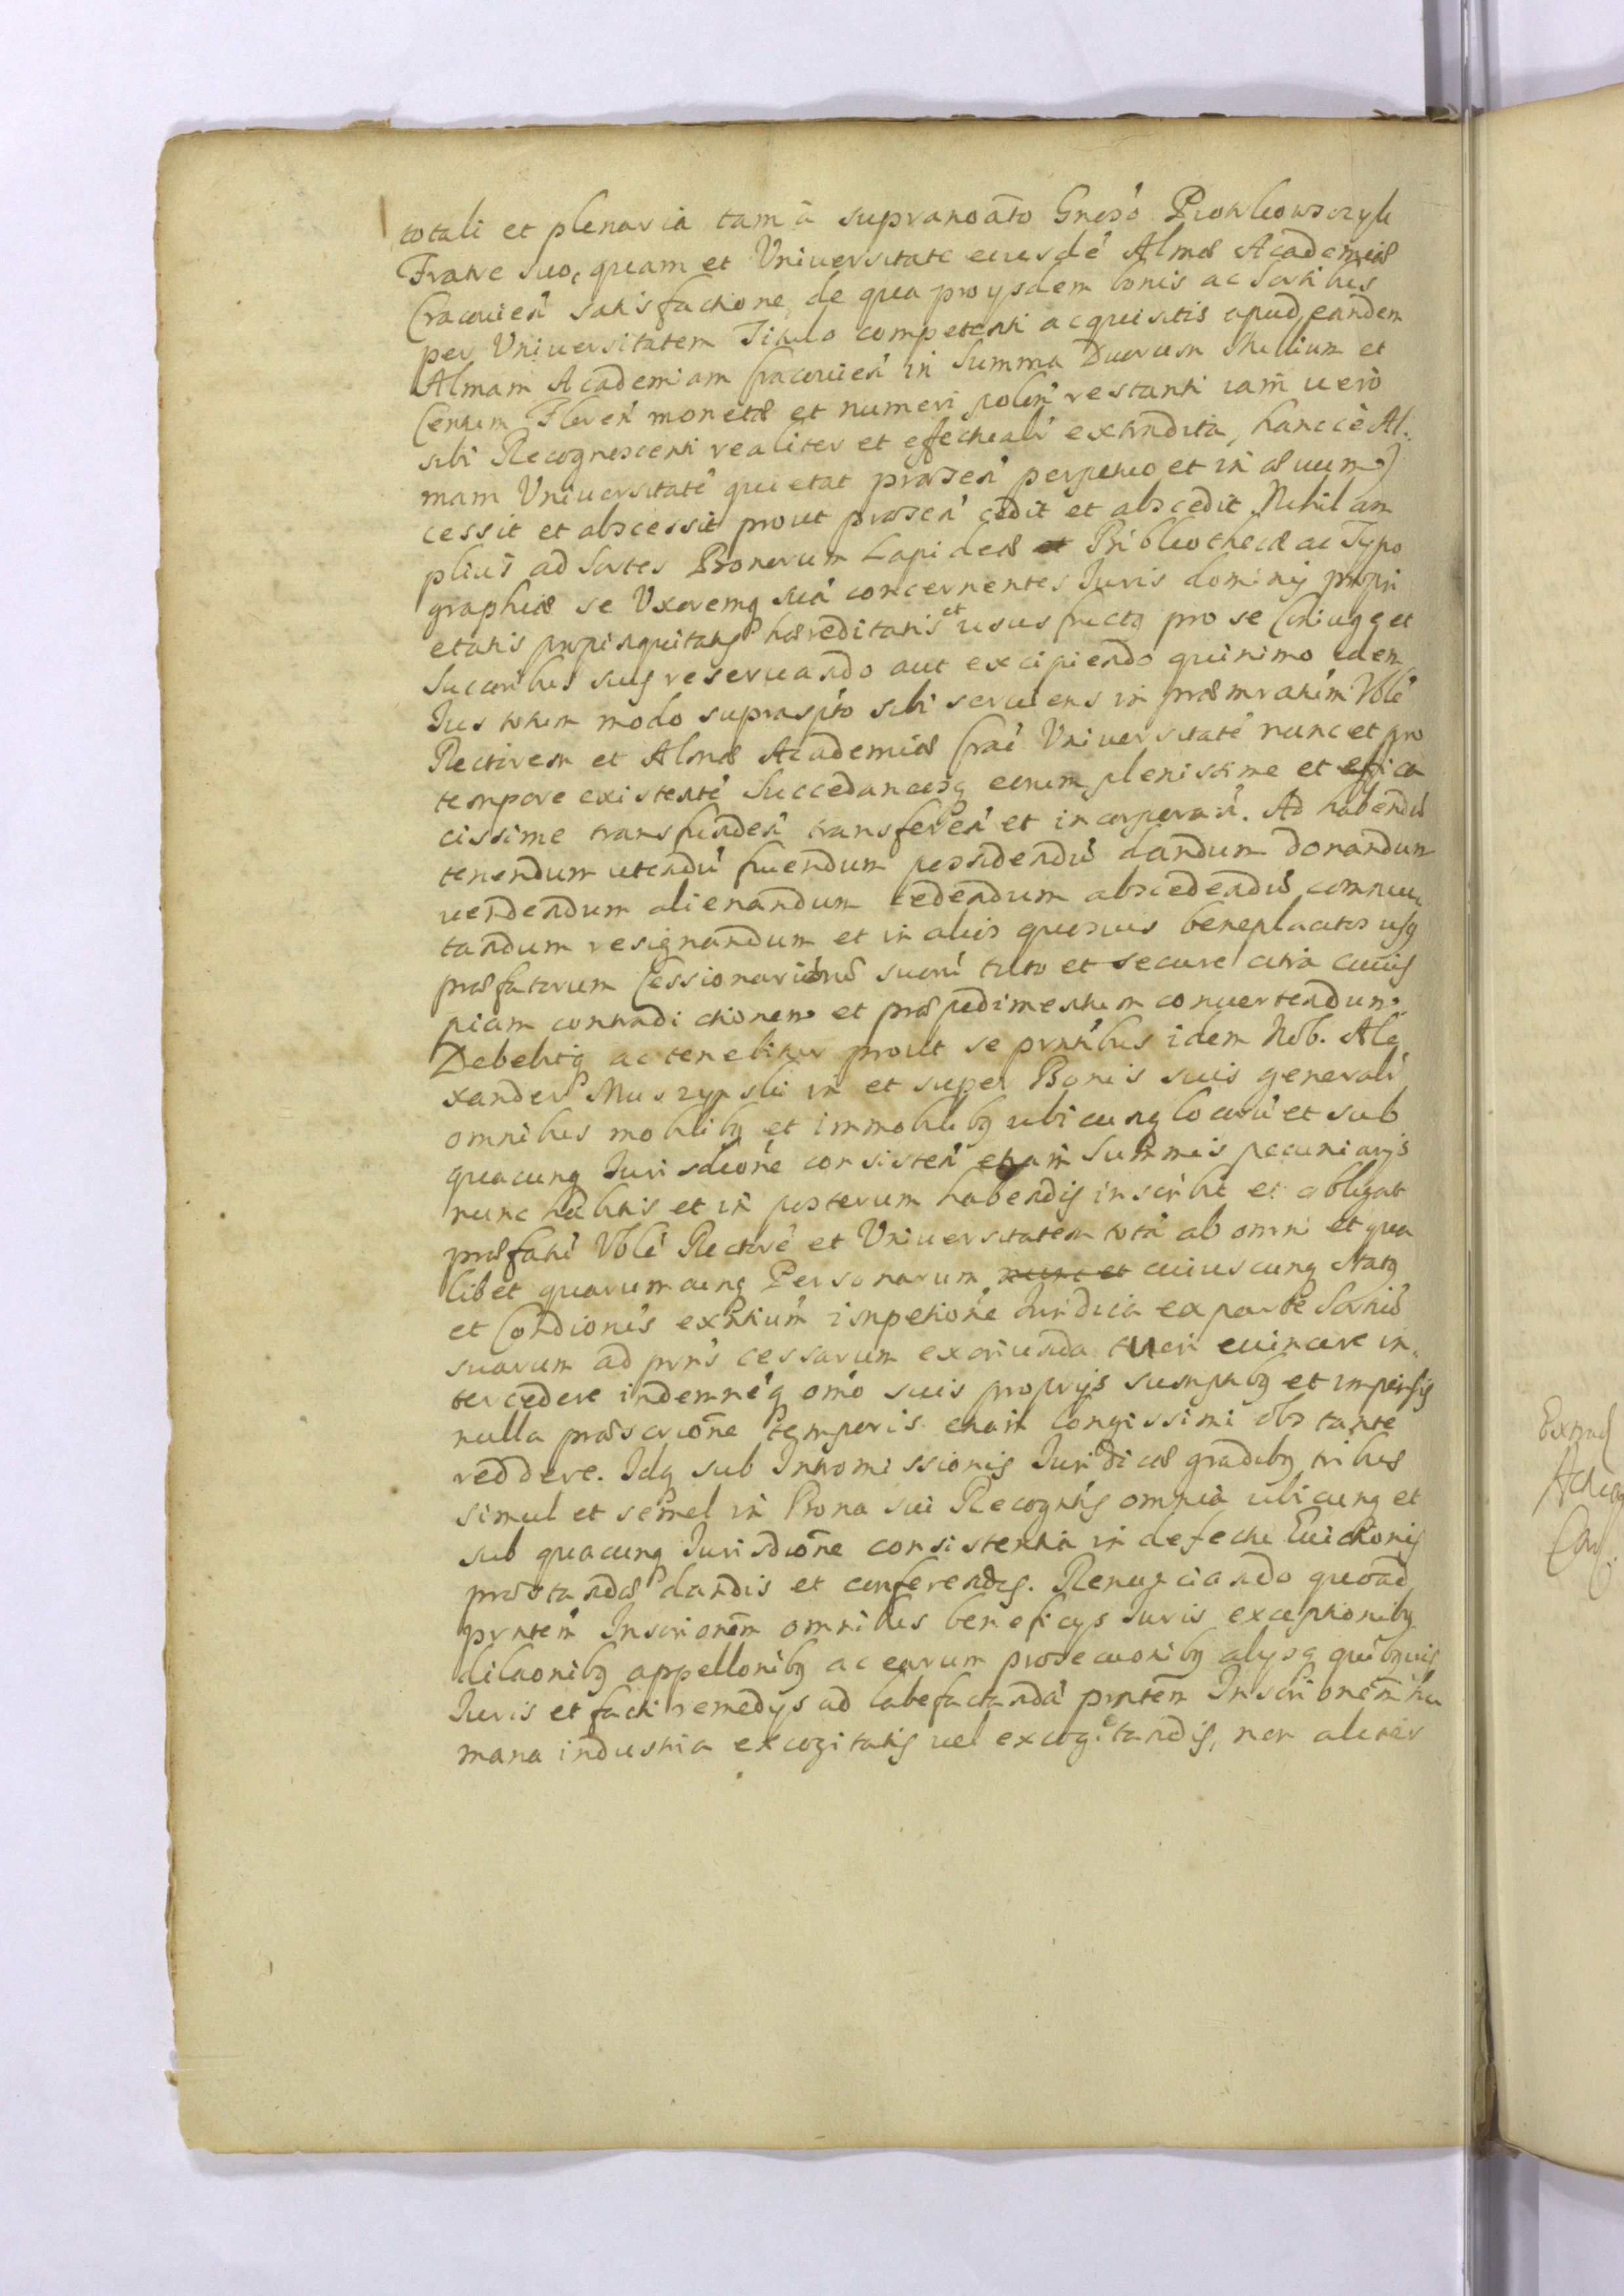 totali et plenaria tam à supranoāto Gnōso Piotrkowczyk
Fratre suo, quam et Universitate eiusdē Almæ Academiæ
Cracovień satisfactione, de qua pro ijsdem bonis ac Sortibus
per Universitatem Titulo competenti acquisitis apud eandem
Almam Academiam Cracovień in Summa Duorum Millium et
Centum Floreń monetæ et numeri poloń restanti iam vero
sibi Recognoscenti realiter et effectualr extradita, hancce Al:
mam Universitatē quietat præseń perpetuo et in ævum)
cessit et abscessit prout præseń cedit et abscedit Nihil am
pliuś ad Sortes Bonorum Lapideæ et Bibliothecæ ac Typo
graphiæ se Uxoremq suā concernentes Juris dominij propri
etatis propinquitatis hæreditatis et usus fructq pro se Coniuge et
Succoribus suis reservando aut excipiendo quinimo idem
Jus totum modo supraspto sibi serviens in præmratum Vblē
Rectorem et Almæ Academiæ Crac Universitatē nunc et pro
tempore existentē Succedaneosq eorum plenissime et effica
cissime transfundeń transfereń et incorporań. Ad habendū
tenendum utendū fruendum possidendū dandum donandum
vendendum alienandum cedendum abscedendū commu
tandum resignandum et in alios quosvis beneplacitos usq
præfatorum Cessionariorū suorū tuto et secure citra cuius
piam contradictionem et præpedimentum convertendum.
Debebitq ac tenebitur prout se prntibus idem Nob. Ale
xander Muszynski in et super Bonis suis generalr
omnibus mobilibq et immobilibq ubicunq locorū et sub
quacunq Jurisdione consisteń etiam Summis pecuniarijs
nunc habitis et in posterum habendis inscribit et obligat
præfatū Vblē Rectorē et Universitatem totā ab omni et qua
libet quarumcunq Personarum nunc et cuiuscunq Statq
et Condionis exntium impetione Juridica ex parte Sortiū
suarum ad prns cessarum exoriunda tueri evincere in
tercedere indemnēq omō suis proprijs sumptibq et impensis
nulla præscrione temporis etiam longissimi obstante
reddere. Idq sub Intromissionis Juridicæ gradibq tribus
simul et semel in Bona sui Recogntis omnia ubicunq et
sub quacunq Jurisdione consistentia in defectu Evictionis
præstandæ dandis et conferendis. Renunciando quoad
prntem Inscrionem omnibus beneficijs Juris exceptionibq
dilaonibq appellonibq ac earum prosecuonibq alijsq quibqvis
Juris et facti remedijs ad labefactandā prntem Inscrionem hu
mana industria excogitatis vel excogitandis, non aliter